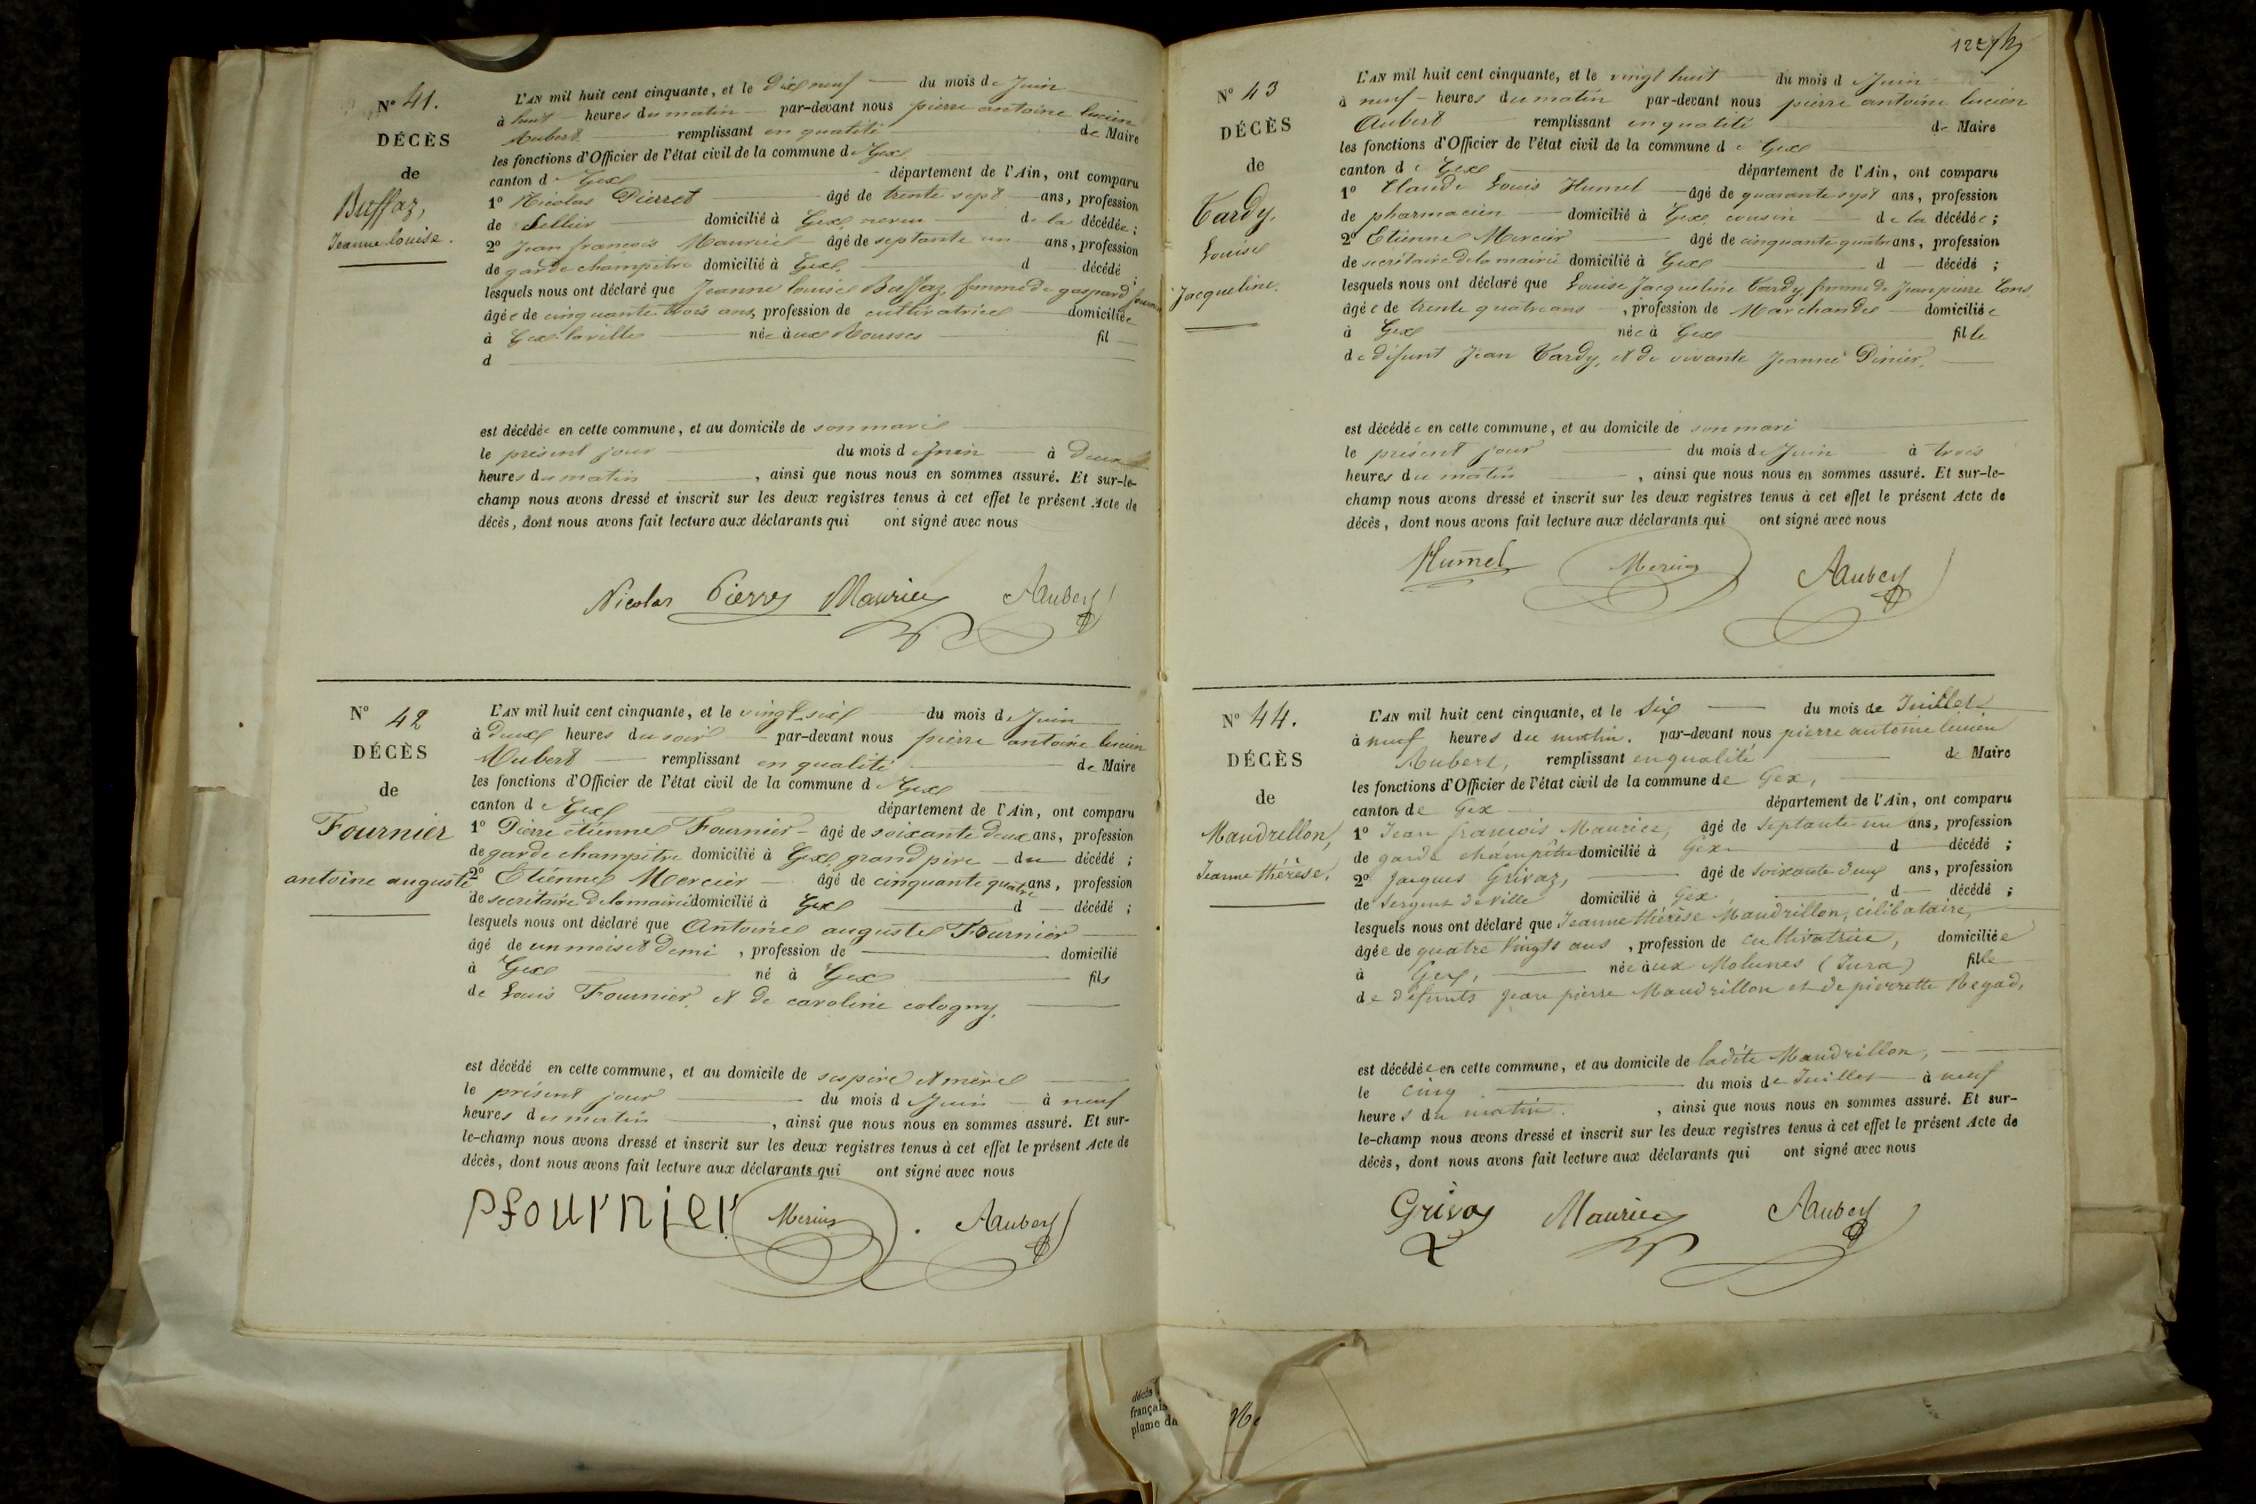 N° 41.
DÉCÈS
de
Buffaz,
Jeanne louise.
L'AN mil huit cent cinquante, et le Dix neuf du mois de Juin
à huit heures du matin par-devant nous pierre antoine lucien
Aubert remplissant en qualité de Maire
les fonctions d'Officier de l'état civil de la commune de Gex
canton de Gex département de l'Ain, ont comparu
1° Nicolas Pierret âgé de trente sept ans, profession
de Sellier domicilié à Gex neveu de la décédée;
2° Jean françois Maurice âgé de septante un ans, profession
de garde champêtre domicilié à Gex, d décédé ;
lesquels nous ont déclaré que Jeanne louise Buffaz, femme de gaspard
âgée de cinquante trois ans, profession de cultivatrice domiciliée
à Gex-la ville née aux Rousses fil
d
est décédée en cette commune, et au domicile de son mari
le présent jour du mois de Juin à deux
heures du matin, ainsi que nous nous en sommes assuré. Et sur-le-
champ nous avons dressé et inscrit sur les deux registres tenus à cet effet le présent Acte de
décès, dont nous avons fait lecture aux déclarants qui ont signé avec nous
Nicolas Pierret Maurice AAubert
N° 42
DÉCÈS
de
Fournier
antoine auguste
L'AN mil huit cent cinquante, et le vingt-six du mois de Juin
à deux heures du soir par-devant nous pierre antoine lucien
Aubert remplissant en qualité de Maire
les fonctions d'Officier de l'état civil de la commune de Gex
canton de Gex département de l'Ain, ont comparu
1° Pierre étienne Fournier âgé de soixante deux ans, profession
de garde champêtre domicilié à Gex, grand père du décédé ;
2° Etienne Mercier âgé de cinquante quatre ans, profession
de secrétaire de la mairie domicilié à Gex d décédé ;
lesquels nous ont déclaré que Antoine auguste Fournier
âgé de un mois et demi, profession de domicilié
à Gex né à Gex fils
de Louis Fournier, et de caroline cologny,
est décédé en cette commune, et au domicile de ses père et mère
le présent jour du mois de Juin à neuf
heures du matin, ainsi que nous nous en sommes assuré. Et sur-
le-champ nous avons dressé et inscrit sur les deux registres tenus à cet effet le présent Acte de
décès, dont nous avons fait lecture aux déclarants qui ont signé avec nous
Pfournier Mercier AAubert
N° 43
DÉCÈS
de
Tardy,
Louise
Jacqueline.
L'AN mil huit cent cinquante, et le vingt huit du mois de Juin
à neuf heures du matin par-devant nous pierre antoine lucien
Aubert remplissant en qualité de Maire
les fonctions d'Officier de l'état civil de la commune de Gex
canton de Gex département de l'Ain, ont comparu
1° Claude Louis Humel âgé de quarante sept ans, profession
de pharmacien domicilié à Gex cousin de la décédée ;
2° Etienne Mercier âgé de cinquante quatre ans, profession
de secrétaire de la mairie domicilié à Gex d décédé ;
lesquels nous ont déclaré que Louise Jacqueline Tardy, femme de Jean pierre
âgée de trente quatre ans, profession de Marchande domiciliée
à Gex née à Gex fille
de défunt Jean Tardy, et de vivante Jeanne Dinier.
est décédée en cette commune, et au domicile de son mari
le présent jour du mois de Juin à trois
heures du matin, ainsi que nous nous en sommes assuré. Et sur-le-
champ nous avons dressé et inscrit sur les deux registres tenus à cet effet le présent Acte de
décès, dont nous avons fait lecture aux déclarants qui ont signé avec nous
Humel Mercier AAubert
N° 44.
DÉCÈS
de
Mandrillon,
Jeanne thérèse.
L'AN mil huit cent cinquante, et le Six du mois de Juillet
à neuf heures du matin. par-devant nous pierre antoine lucien
Aubert, remplissant en qualité de Maire
les fonctions d'Officier de l'état civil de la commune de Gex,
canton de Gex département de l'Ain, ont comparu
1° Jean françois Maurice, âgé de Septante un ans, profession
de garde champêtre domicilié à Gex d décédé ;
2° Jacques Grivaz, âgé de soixante deux ans, profession
de Sergent de ville domicilié à Gex d décédé ;
lesquels nous ont déclaré que Jeanne thérèse Mandrillon, célibataire,
âgée de quatre vingts ans, profession de cultivatrice, domiciliée
à Gex, née aux Molunes (Jura) fille
de défunts jean pierre Mandrillon et de pierrette Regad,
est décédée en cette commune, et au domicile de ladite Mandrillon,
le cinq du mois de Juillet à neuf
heures du matin. , ainsi que nous nous en sommes assuré. Et sur-
le-champ nous avons dressé et inscrit sur les deux registres tenus à cet effet le présent Acte de
décès, dont nous avons fait lecture aux déclarants qui ont signé avec nous
Grivaz Maurice AAubert
décès
français
plume da